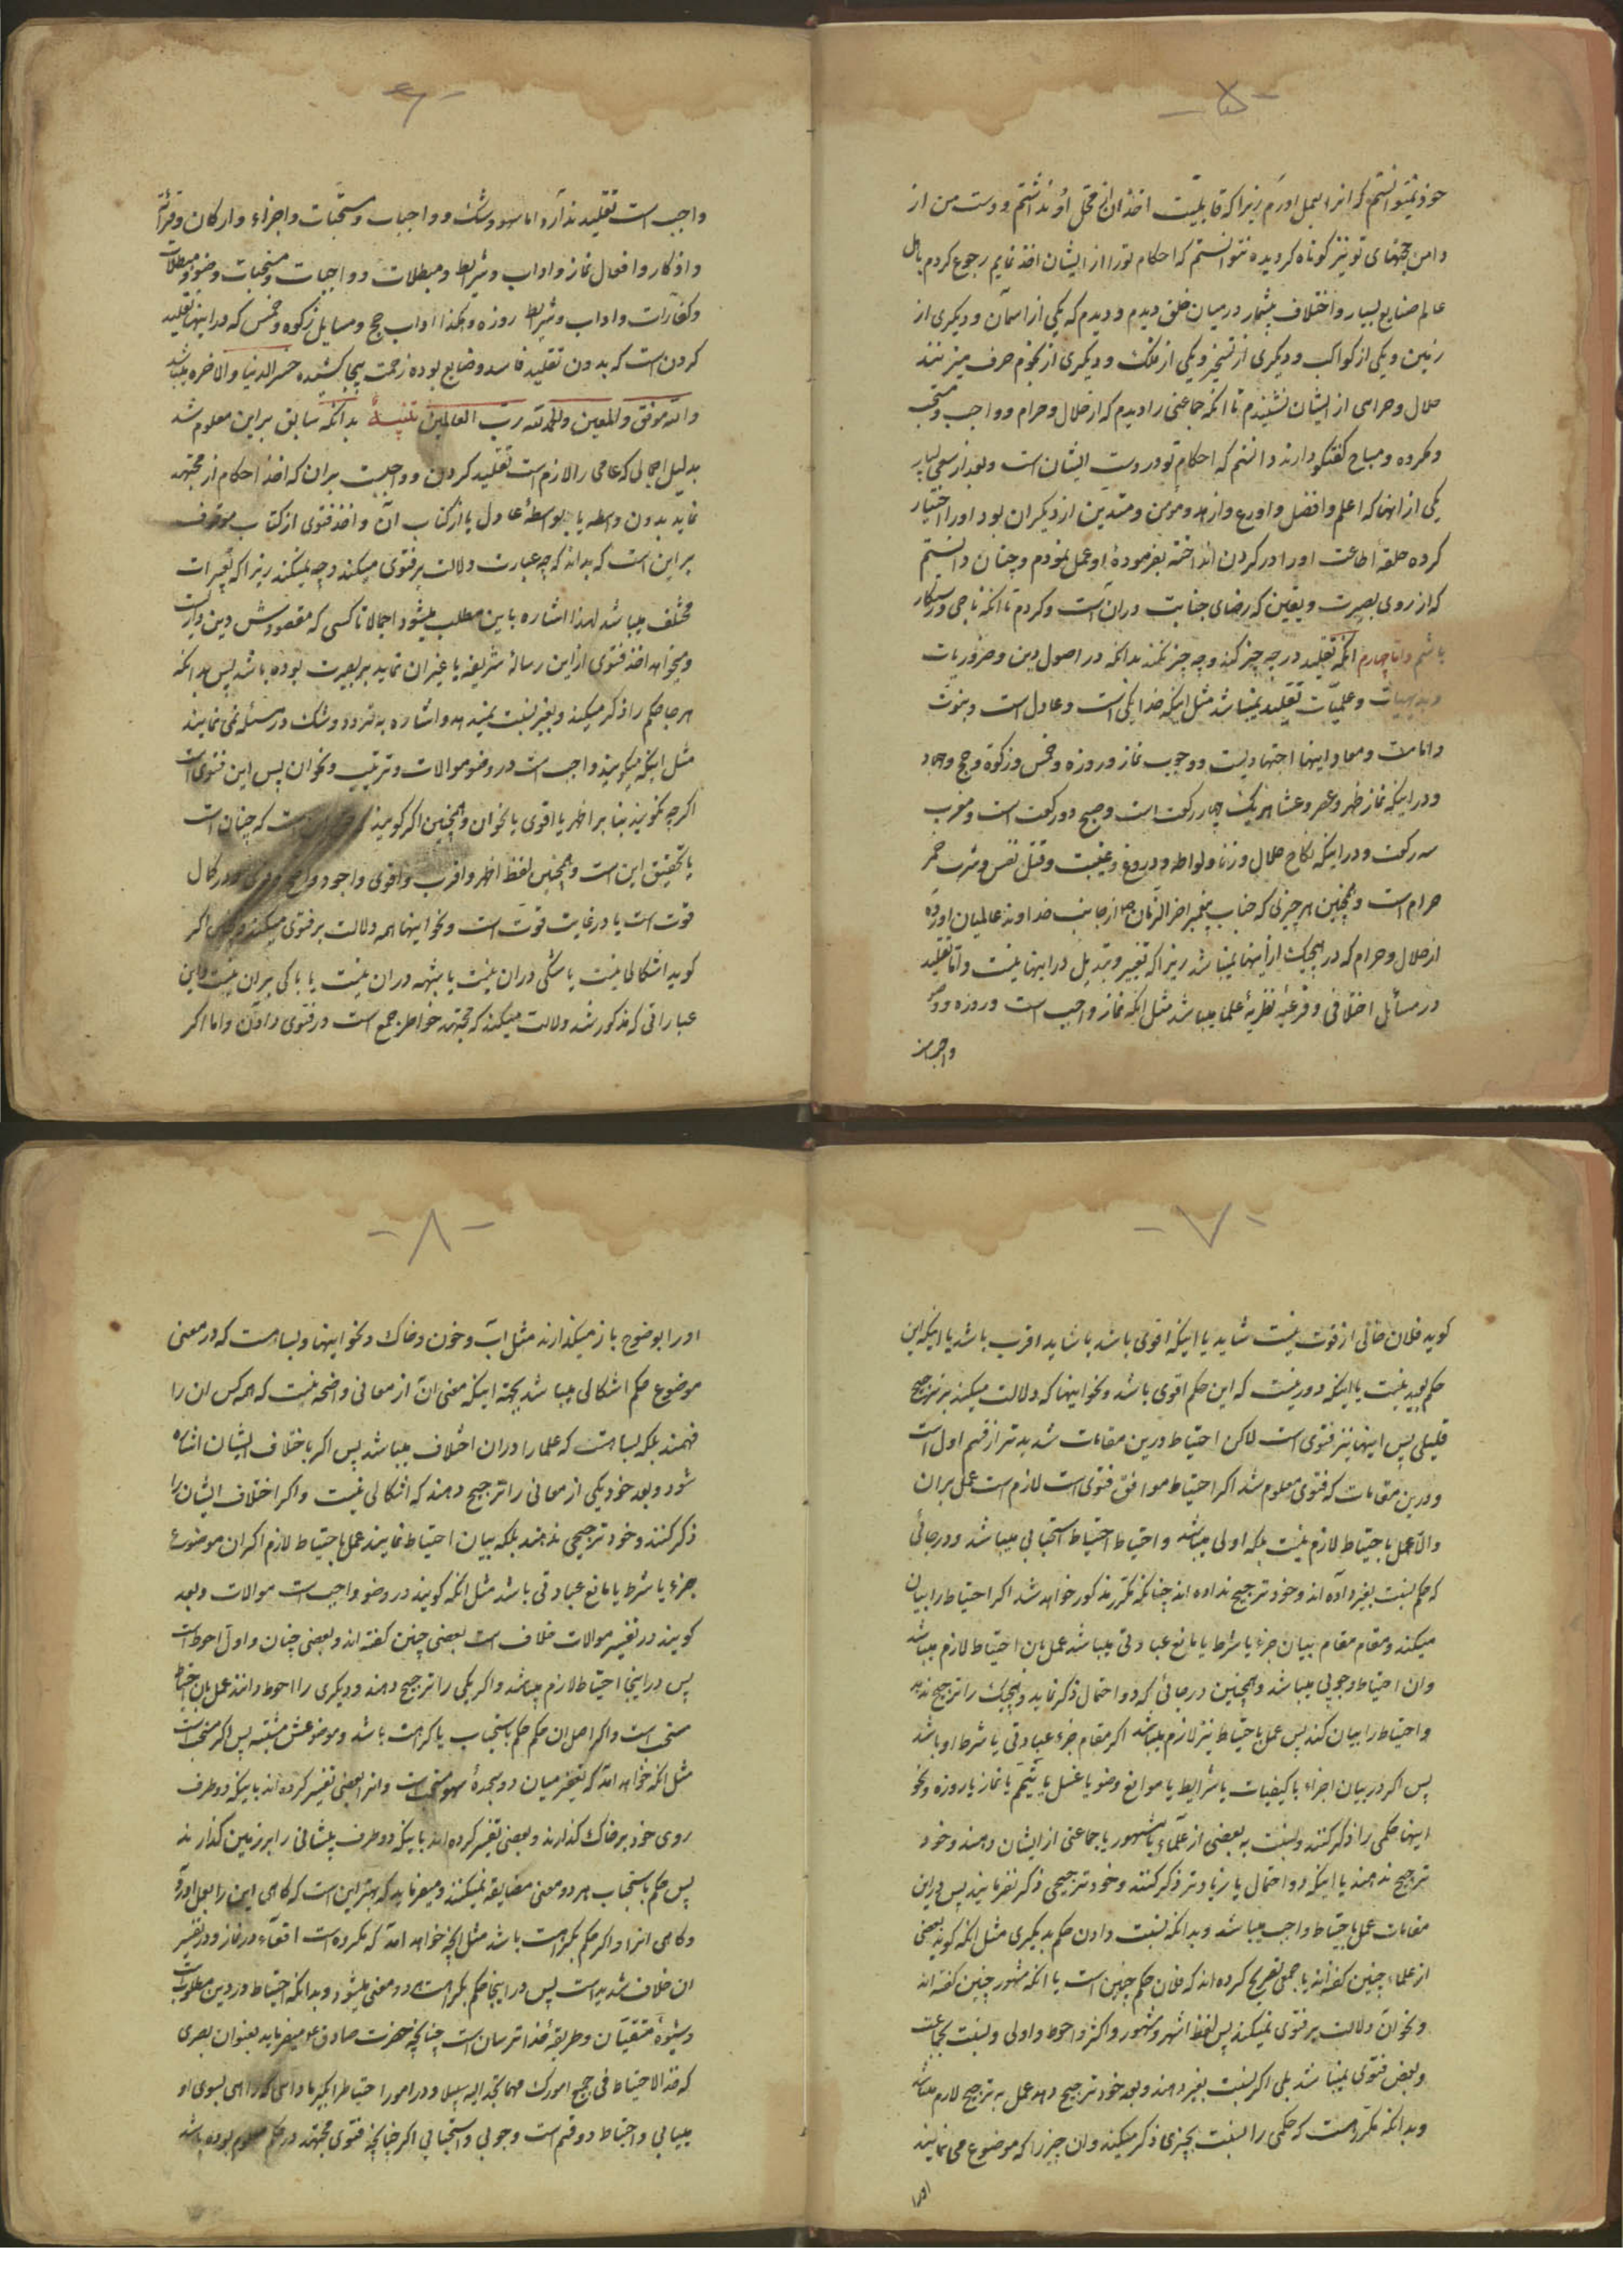 -۵-
خود نمیتوانستم که انرا بعمل اورم زیرا که قابلیت اخذ ان از محل او نداشتم و دست من از
دامن حجتهای تو نیز کوتاه کردیده نتوانستم که احکام تو را از ایشان اخذ نمایم رجوع کردم باهل
عالم صنایع بسیار و اختلاف بیشمار در میان خلق دیدم و دیدم که یکی از اسمان و دیکری از
زمین و یکی از کواکب و دیکری از تسخیر و یکی از ملک و دیکری از نجوم حرف میزنند
حلال و حرامی از ایشان نشنیدم تا انکه جماعتی را دیدم که از حلال و حرام و واجب و مستحب
و مکروه و مباح کفتکو دارند دانستم که احکام تو در دست ایشان است و بعد از سعی بسیار
یکی از انها که اعلم و افضل و اورع و ازهد و مؤمن و متدین از دیکران بود او را اختیار
کرده حلقهٔ اطاعت او را در کردن انداخته بفرمودهٔ او عمل نمودم و چنان دانستم
که از روی بصیرت و یقین که رضای جنابت دران است و کردم تا انکه ناجی و رستکار
باشم و اما چهارم انکه تقلید در چه چیز کند و چه چیز نکند بدانکه در اصول دین و ضروریات
و بدیهیات و علمیات تقلید نمیباشد مثل اینکه خدا یکی است و عادل است و نبوت
و امامت و معاد و اینها اجتهادیست و وجوب نماز و روزه و خمس و زکوة و حج و جهاد
و در اینکه نماز ظهر و عصر و عشا هر یک چهار رکعت است و صبح دو رکعت است و مغرب
سه رکعت و در اینکه نکاح حلال و زنا و لواط و دروغ و غیبت و قتل نفس و شرب خمر
حرام است و همچنین هر چیزی که جناب پیغمبر اخر الزمان ص از جانب خداوند عالمیان اورده
از حلال و حرام که در هیچیک از اینها نمیباشد زیرا که تغییر و تبدیل در اینها نیست و اما تقلید
در مسائل اختلافی و فرعیه نظریهٔ علما میباشد مثل انکه نماز واجب است و روزه و وضو
واجب است
-۶-
واجب است تقلید ندارد اما سهو و شک و واجبات و مستحبات و اجزاء و ارکان و قرائة
و اذکار و افعال نماز و اداب و شرایط و مبطلات و واجبات و مستحبات وضو و مبطلات
و کفارات و اداب و شرایط روزه و هکذا اداب حج و مسایل زکوه و خمس که در اینها تقلید
کردن است که بدون تقلید فاسد و ضایع بوده زحمت بیجا کشیده خسر الدنیا و الاخره میباشد
و الله موفق و المعین و الحمد لله رب العالمین تنبیه بدانکه سابق بر این معلوم شد
بدلیل اجمالی که عامی را لازم است تقلید کردن و واجبست بران که اخذ احکام از مجتهد
نماید بدون واسطه یا بواسطهٔ عادل یا از کتاب ان و اخذ فتوی از کتاب موقوف
بر این است که بداند که چه عبارت دلالت بر فتوی میکند و چه نمیکند زیرا که تعبیرات
مختلف میباشد لهذا اشاره باین مطلب میشود اجمالا تا کسی که مقصودش دین داریست
و میخواهد اخذ فتوی از این رسالهٔ شریفه یا غیر ان نماید بر بصیرت بوده باشد پس بدانکه
هر جا حکم را ذکر میکند و بغیر نسبت نمیدهد و اشاره به تردد و شک در مسئله نمی نمایند
مثل اینکه میکویند واجب است در وضو موالات و ترتیب و نحو ان پس این فتوی است
اکرچه نکویند بنا بر اظهر یا اقوی یا نحو ان و همچنین اکر کویند است که چنان است
یا تحقیق این است و همچنین لفظ اظهر و اقرب و اقوی و اجود و در کمال
قوت است یا در غایت قوت است و نحو اینها همه دلالت بر فتوی میکنند اکر
کوید اشکالی نیست یا شکی دران نیست یا شبهه دران نیست یا باکی بران نیست و این
عباراتی که مذکور شد دلالت میکند که مجتهد خواطر جمع است در فتوی دادن و اما اکر
-۷-
کوید فلان خالی از قوت نیست شاید یا اینکه اقوی باشد یا شاید اقرب باشد یا اینکه این
حکم بعید نیست یا اینکه دور نیست که این حکم اقوی باشد و نحو اینها که دلالت میکند بر ترجیح
قلیلی پس اینها نیز فتوی است لاکن احتیاط درین مقامات شدیدتر از قسم اول است
و درین مقامات که فتوی معلوم شد اکر احتیاط موافق فتوی است لازم است عمل بران
والا عمل باحتیاط لازم نیست بلکه اولی میباشد و احتیاط احتیاط استحبابی میباشد و در جائی
که حکم نسبت بغیر داده اند و خود ترجیح نداده اند چنانکه مکرر مذکور خواهد شد اکر احتیاط را بیان
میکند و مقام مقام بیان جزء یا شرط یا مانع عبادتی میباشد عمل بان احتیاط لازم میباشد
وان احتیاط وجوبی میباشد و همچنین در جائی که دو احتمال ذکر نماید و هیچیک را ترجیح ندهد
و احتیاط را بیان کند پس عمل باحتیاط نیز لازم میباشد اکر مقام جزء عبادتی یا شرط او باشد
پس اکر در بیان اجزاء یا کیفیات یا شرایط یا موانع وضو یا غسل یا تیمم یا نماز یا روزه و نحو
اینها حکمی را ذکر کنند و نسبت به بعضی از علماء یا مشهور یا جماعتی از ایشان دهند و خود
ترجیح ندهند یا اینکه دو احتمال یا زیادتر ذکر کنند و خود ترجیحی ذکر نفرمایند پس در این
مقامات عمل باحتیاط واجب میباشد و بدانکه نسبت دادن حکم بدیکری مثل انکه کوید بعضی
از علماء چنین کفته اند یا جمعی تصریح کرده اند که فلان حکم چنین است یا انکه مشهور چنین کفته اند
و نحو ان دلالت بر فتوی نمیکند پس لفظ اشهر و مشهور و اکثر و احوط و اولی و نسبت بجماعت
و بعض فتوی نمیباشد بلی اکر نسبت بغیر دهند و بعد خود ترجیح دهد عمل به ترجیح لازم میباشد
و بدانکه مکرر است که حکمی را نسبت بچیزی ذکر میکند وان چیز را که موضوع می نمایند
اورا
-۸-
اورا بوضوح باز میکذارند مثل اب و خون و خاک و نحو اینها و بسا هست که در معنی
موضوع حکم اشکالی میباشد بجهة اینکه معنی ان از معانی واضحه نیست که همه کس ان را
فهمند بلکه بسا هست که علما را دران اختلاف میباشد پس اکر باختلاف ایشان اشاره
شود و بعد خود یکی از معانی را ترجیح دهند که اشکالی نیست و اکر اختلاف ایشان را
ذکر کنند و خود ترجیحی ندهند بلکه بیان احتیاط نمایند عمل باحتیاط لازم اکر ان موضوع
جزء یا شرط یا مانع عبادتی باشد مثل انکه کویند در وضو واجب است موالات و بعد
کویند در تفسیر موالات خلاف است بعضی چنین کفته اند و بعضی چنان و اول احوط است
پس در اینجا احتیاط لازم میباشد و اکر یکی را ترجیح دهند و دیکری را احوط دانند عمل بان احتیاط
مستحب است و اکر اصل ان حکم حکم باستحباب یا کراهت باشد و موضوعش مشتبه پس اکر مستحب است
مثل انکه خواهد امد که تعفیر میان دو سجدهٔ سهو مستحب است و انرا بعضی تفسیر کرده اند باینکه دو طرف
روی خود بر خاک کذارند و بعضی تفسیر کرده اند باینکه دو طرف پیشانی را بر زمین کذارند
پس حکم باستحباب هر دو معنی مضایقه نمیکنند و میفرماید که بهتر این است که کاهی این را بعمل اورد
و کاهی انرا و اکر حکم بکراهت باشد مثل انچه خواهد امد که مکروه است اقعاء در نماز و در تفسیر
ان خلاف شدید است پس در اینجا حکم بکراهت هر دو معنی میشود و بدانکه احتیاط در دین مطلوبست
و شیوهٔ متقیان و طریقهٔ خدا ترسان است چنانچه حضرت صادق ع میفرماید بعنوان بصری
که خذ الاحتیاط فی جمیع امورک مهما تجد الیه سبیلا و در امور احتیاط را بکیر مادامی که راهی بسوی او
مییابی و احتیاط دو قسم است وجوبی و استحبابی اکر چنانچه فتوی مجتهد در حکم معلوم بوده باشد